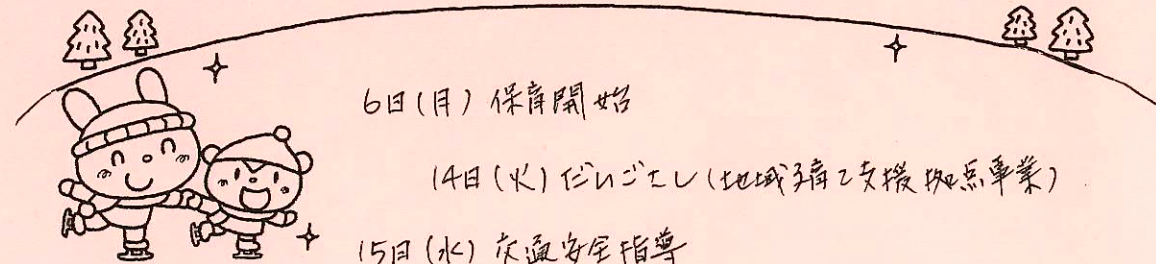 6日(月) 保育開始
14日(火) だいごたし(地域子育て支援拠点事業)
15日(水) 交通安全指導